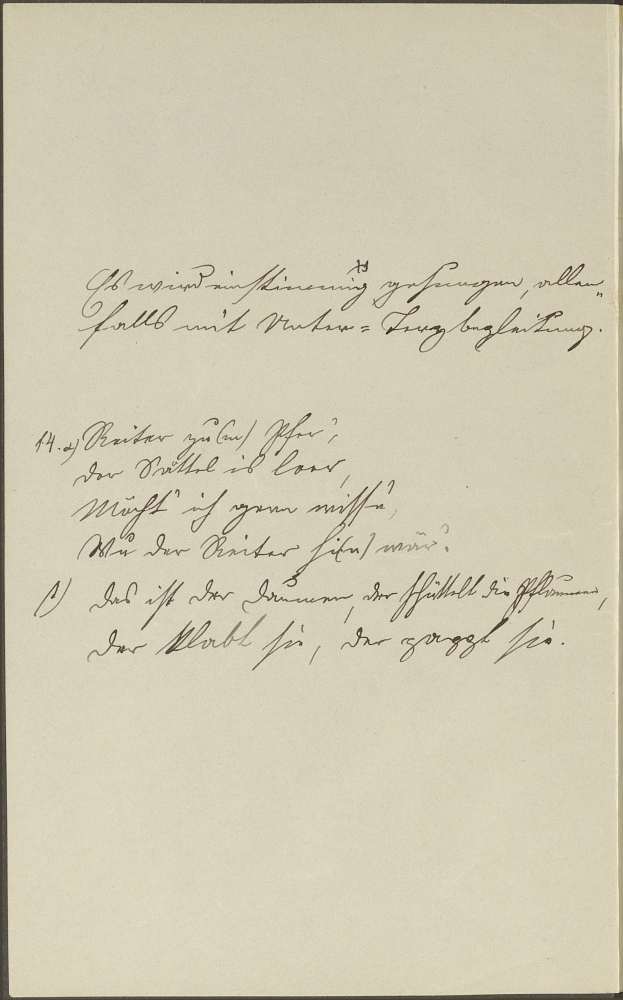 Es wird einstimmig gesungen, allen
falls mit Unter= Terzbegleitung.
14. α) Reiter zu(m) Pfer',
der Sattel is leer,
Möcht' ich gern wisse',
Wu der Reiter hi(n) wär'.
β) Das ist der Daumen, der schüttelt die Pflaumen,
der klabt sie, der zappt sie.